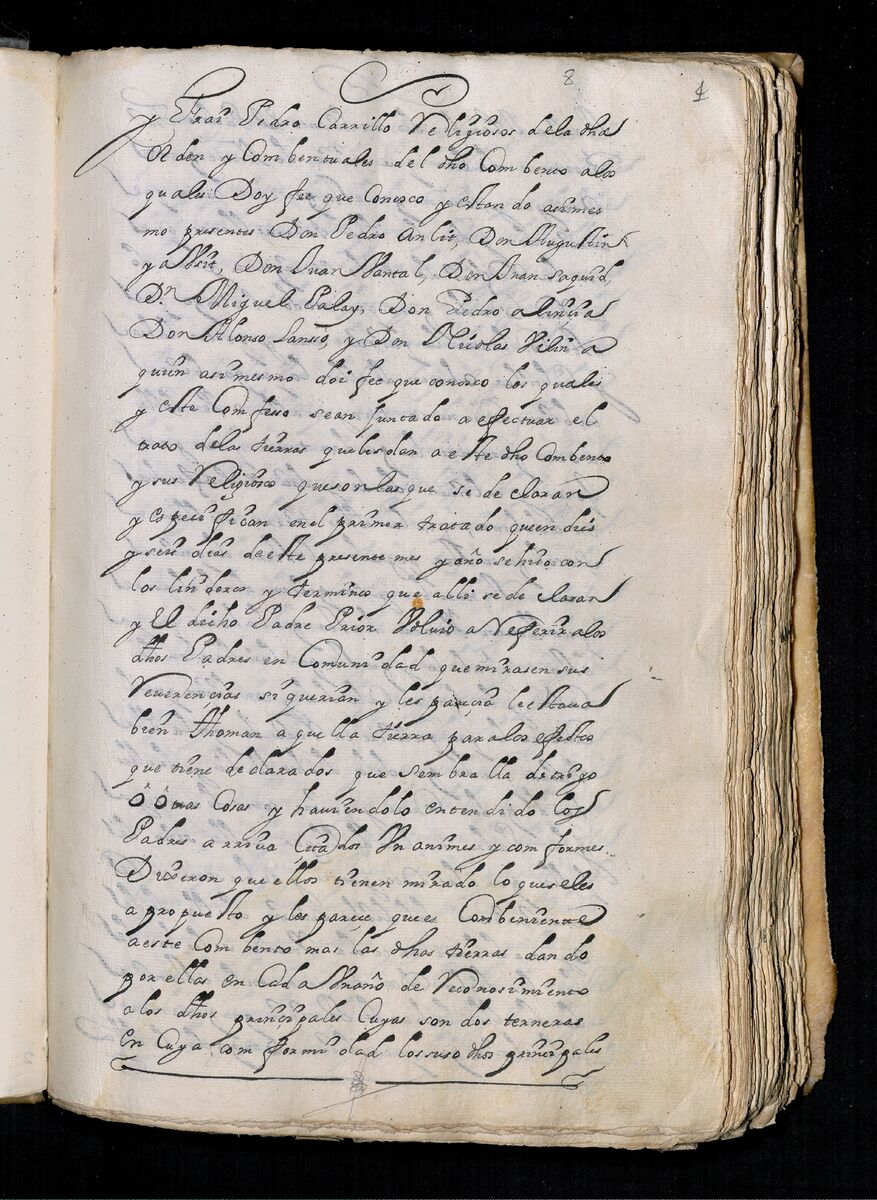 8
1
y Frai Pedro Carrillo Religiosos dela dha
Orden y Combentuales del dho Combento alos
quales Doy fee que Conosco y estando asimes
mo presentes Don Pedro Don Augustin
Don Juan Don Juan
Dn Miguel Palay, Don Pedro
Don Alonso y Don Nicolas
quien asimesmo doi fee que conosco los quales
y este Comfeso sean juntado a efectuar el
trato delas tierras queles dan a este dho Combento
y sus Religiosos queson las que se declaran
y Especifican enel primer tratado queen dies
y seis dias deeste presente mes y año se hiso con
los linderos y terminos que alli sedeclaran
y El dicho Padre Prior Volvio a Referir alos
dhos Padres en Comunidad quemirasen sus
Reverencias si querian y les parecia leestava
bien thoman aquella tierra paralos efectos
que tiene declarados que sembralla detrigo
ô ôtras Cosas y haviendolo entendido los
Padres arriva Citados Unanimes y comformes
Dixeron que ellos tienen mirado lo queseles
a propuesto y les parece quees Combeniente
aeste Combento mas las dhas tierras dando
por ellas en Cada Unaño de Reconosimiento
alos dhos principales Cuyas son dos terneras
En Cuya comformidad lossuso dhos principales